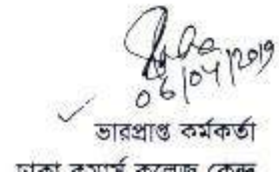 06/04/2019
ভারপ্রাপ্ত কর্মকর্তা
ঢাকা কমার্স কলেজ কেন্দ্র